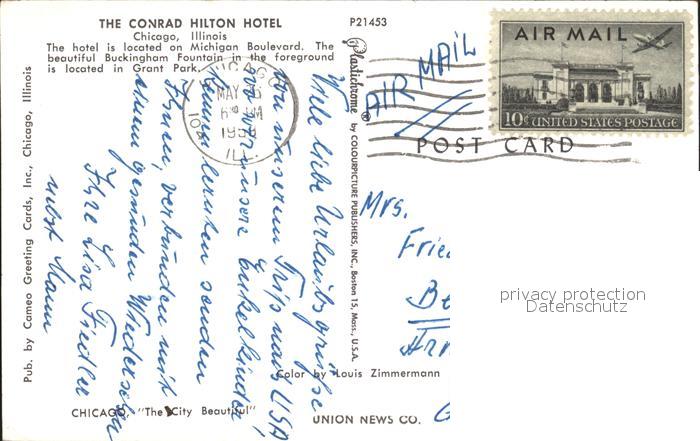 THE CONRAD HILTON HOTEL
Chicago, Illinois
The hotel is located on Michigan Boulevard. The
beautiful Buckingham Fountain in the foreground
is located in Grant Park.
P21453
AIR MAIL
10¢ UNITED STATES POSTAGE
AIR MAIL
CHICAGO
MAY
6 PM
19
ILL.
POST CARD
Pub. by Cameo Greeting Cards, Inc., Chicago, Illinois
Viele liebe Urlaubsgrüße
von unserem Trip nach USA,
wo wir unsere Enkelkinder
kennenlernten senden
Ihnen, verbunden mit
einem gesunden Wiedersehn
Ihre Lisa Fiedler
nebst Mann
Plastichrome ® by COLOURPICTURE PUBLISHERS, INC., Boston 15, Mass., U.S.A.
Mrs.
Frie
Be
privacy protection
Datenschutz
Color by Louis Zimmermann
CHICAGO, "The City Beautiful"
UNION NEWS CO.